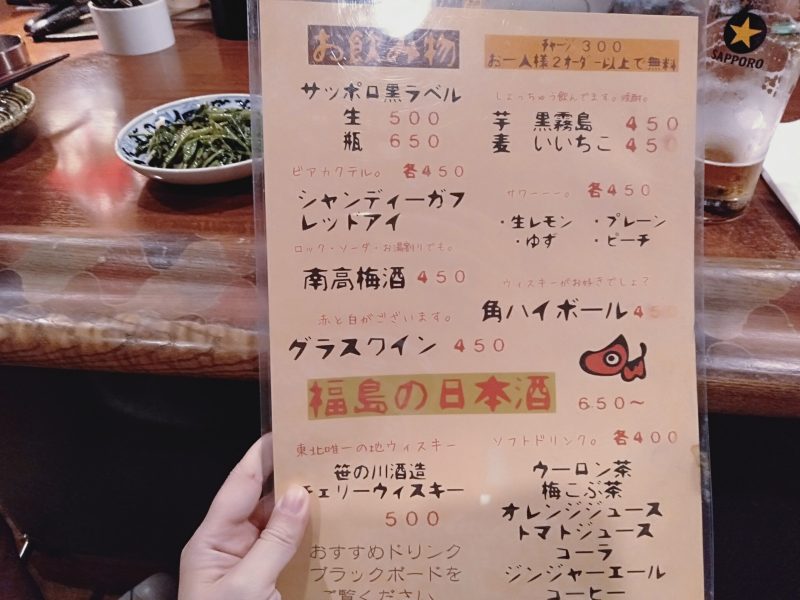 お飲み物
サッポロ黒ラベル
生 500
瓶 650
ビアカクテル。 各450
シャンディーガフ
レッドアイ
ロック・ソーダ・お湯割りでも。
南高梅酒 450
赤と白がございます。
グラスワイン 450
福島の日本酒 650〜
東北唯一の地ウィスキー
笹の川酒造
チェリーウィスキー
500
おすすめドリンク
ブラックボードを
ご覧ください
チャージ 300
お一人様2オーダー以上で無料
しょっちゅう飲んでます。焼酎。
芋 黒霧島 450
麦 いいちこ 450
サワーーー。 各450
・生レモン ・プレーン
・ゆず ・ピーチ
ウィスキーがお好きでしょ?
角ハイボール 450
ソフトドリンク。 各400
ウーロン茶
梅こぶ茶
オレンジジュース
トマトジュース
コーラ
ジンジャーエール
コーヒー
SAPPORO